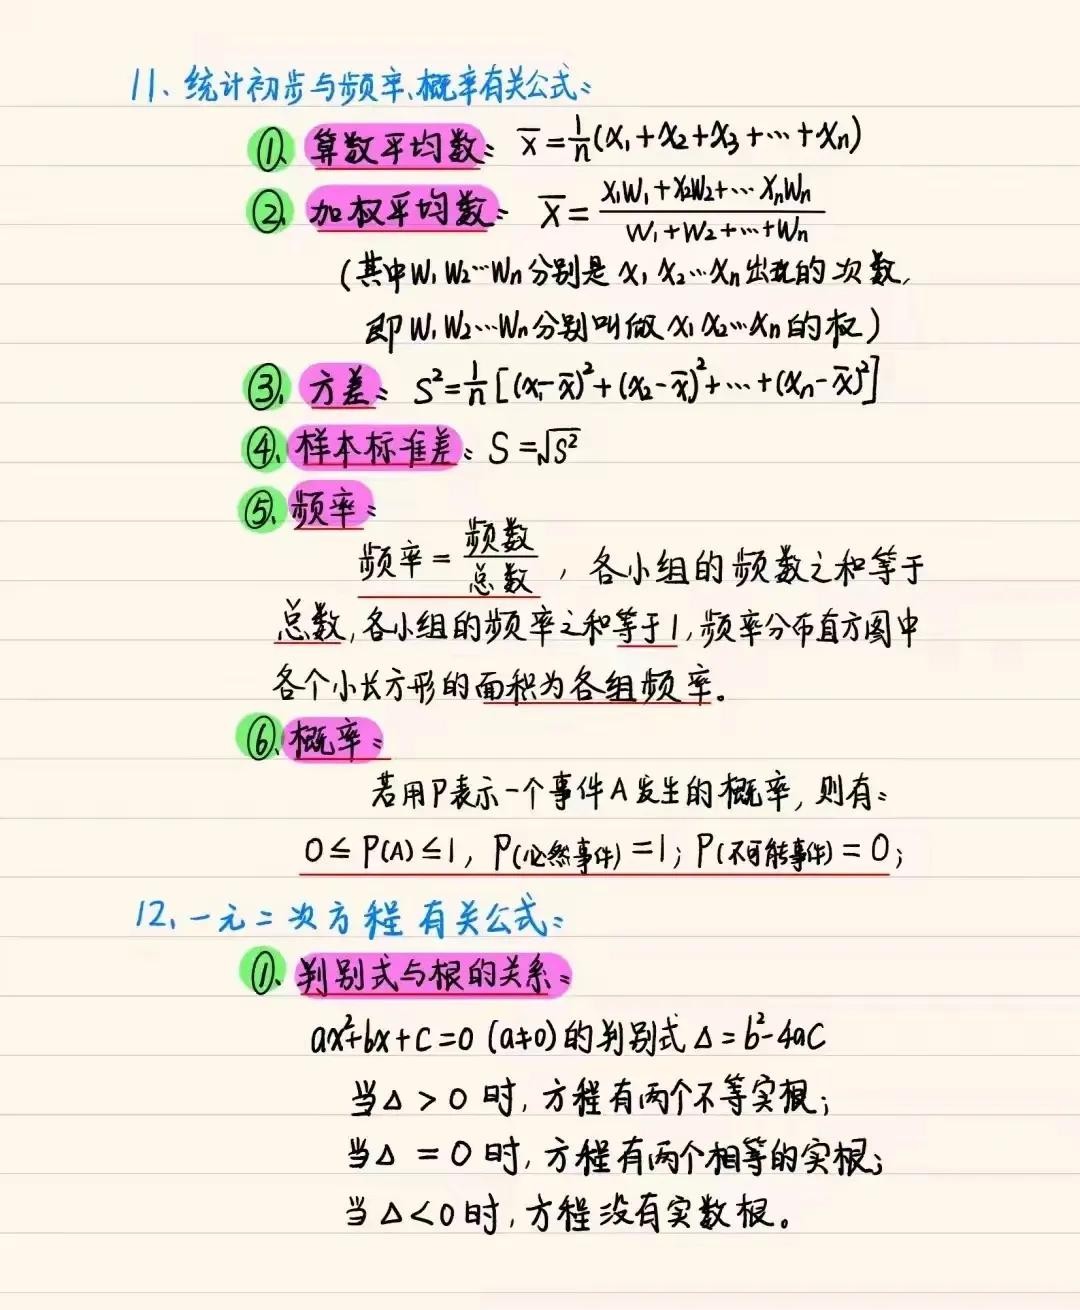 11、统计初步与频率、概率有关公式：
①、算数平均数： x̄=1/n(x₁+x₂+x₃+…+xₙ)
②、加权平均数： x̄=(x₁w₁+x₂w₂+…xₙwₙ)/(w₁+w₂+…+wₙ)
(其中w₁w₂…wₙ分别是x₁x₂…xₙ出现的次数,
即w₁w₂…wₙ分别叫做x₁x₂…xₙ的权)
③、方差： S²=1/n[(x₁-x̄)²+(x₂-x̄)²+…+(xₙ-x̄)²]
④、样本标准差：S=√S²
⑤、频率：
频率=频数/总数，各小组的频数之和等于
总数,各小组的频率之和等于1,频率分布直方图中
各个小长方形的面积为各组频率。
⑥、概率：
若用P表示一个事件A发生的概率,则有：
0≤P(A)≤1, P(必然事件)=1; P(不可能事件)=0;
12、一元二次方程有关公式：
①、判别式与根的关系：
ax²+bx+c=0 (a≠0)的判别式Δ=b²-4ac
当Δ>0时,方程有两个不等实根;
当Δ=0时,方程有两个相等的实根;
当Δ<0时,方程没有实数根。